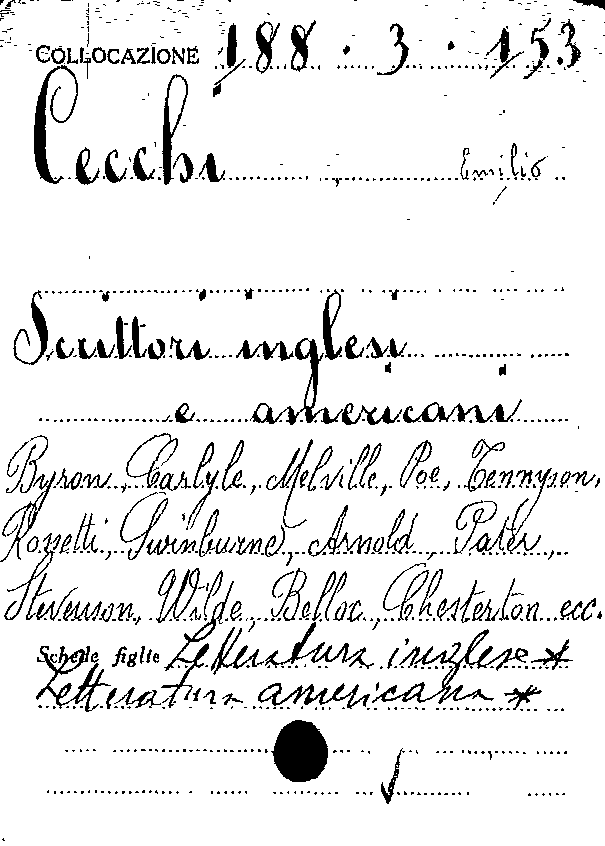 COLLOCAZIONE 188 . 3 . 153
Cecchi, Emilio
Scrittori inglesi
e americani
Byron, Carlyle, Melville, Poe, Tennyson,
Rossetti, Swinburne, Arnold, Pater,
Stevenson, Wilde, Belloc, Chesterton ecc.
Schede figlie Letteratura inglese *
Letteratura americana *